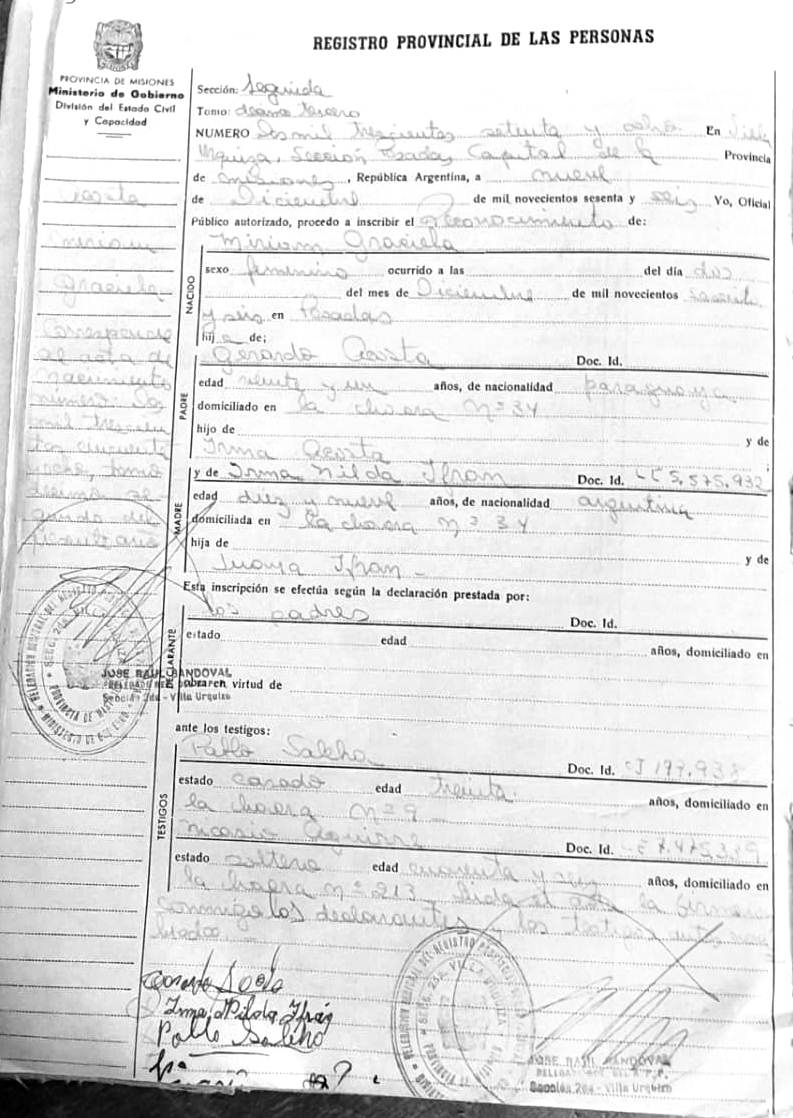 REGISTRO PROVINCIAL DE LAS PERSONAS
PROVINCIA DE MISIONES
Ministerio de Gobierno
División del Estado Civil
y Capacidad
Sección: Segunda
Tomo: décimo tercero
NUMERO Dos mil trescientos setenta y ocho En Villa
Urquiza, Sección Posadas Capital de la Provincia
de Misiones, República Argentina, a nueve
de Diciembre de mil novecientos sesenta y seis Yo, Oficial
Público autorizado, procedo a inscribir el reconocimiento de:
Acosta
Miriam
Graciela
Corresponde
al acta de
nacimiento
número: Dos
mil trescien
tos cincuenta
y ocho, tomo
décimo se
gundo del
NACIDO
Miriam Graciela
sexo femenino ocurrido a las del día dos
del mes de Diciembre de mil novecientos sesenta
y seis en Posadas
hij a de;
PADRE
Gerardo Acosta Doc. Id.
edad veinte y un años, de nacionalidad paraguaya
domiciliado en la chacra Nº 34
hijo de y de
Irma Acosta
MADRE
y de Irma Nilda Ifran Doc. Id. LC 5,575,932
edad diez y nueve años, de nacionalidad argentina
domiciliada en la chacra nº 34
hija de y de
Juana Ifran -
Esta inscripción se efectúa según la declaración prestada por:
DECLARANTE
los padres Doc. Id.
estado edad años, domiciliado en
obrare en virtud de
JOSE RAUL SANDOVAL
Sección 2da - Villa Urquiza
ante los testigos:
TESTIGOS
Pablo Saleho Doc. Id. CJ 197,938
estado casado edad treinta años, domiciliado en
la chacra nº 9
Nicasio Aguirre Doc. Id. LE 7.475,339
estado soltero edad cuarenta y seis años, domiciliado en
la chacra nº 213, leída el acta la firman
conmigo los declarantes y los testigos antes nom
brados.
Irma Nilda Ifrán
Pablo Saleho
JOSE RAUL SANDOVAL
Sección 2da - Villa Urquiza